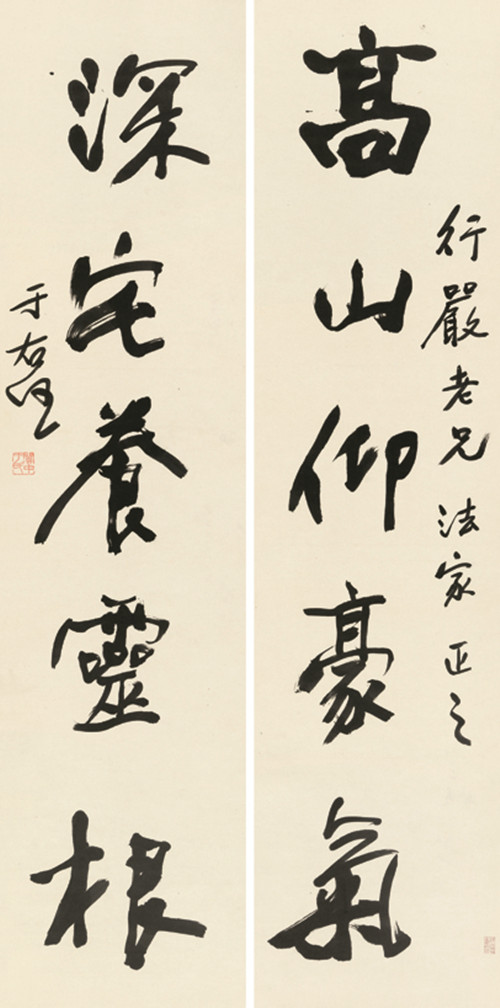 行嚴老兄法家正之
高山仰豪氣
深宅養靈根
于右任